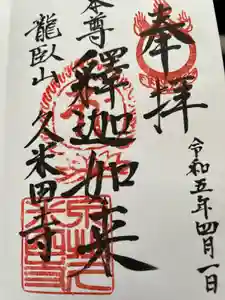 奉拝
令和五年四月一日
本尊
釋迦如来
龍臥山
久米田寺